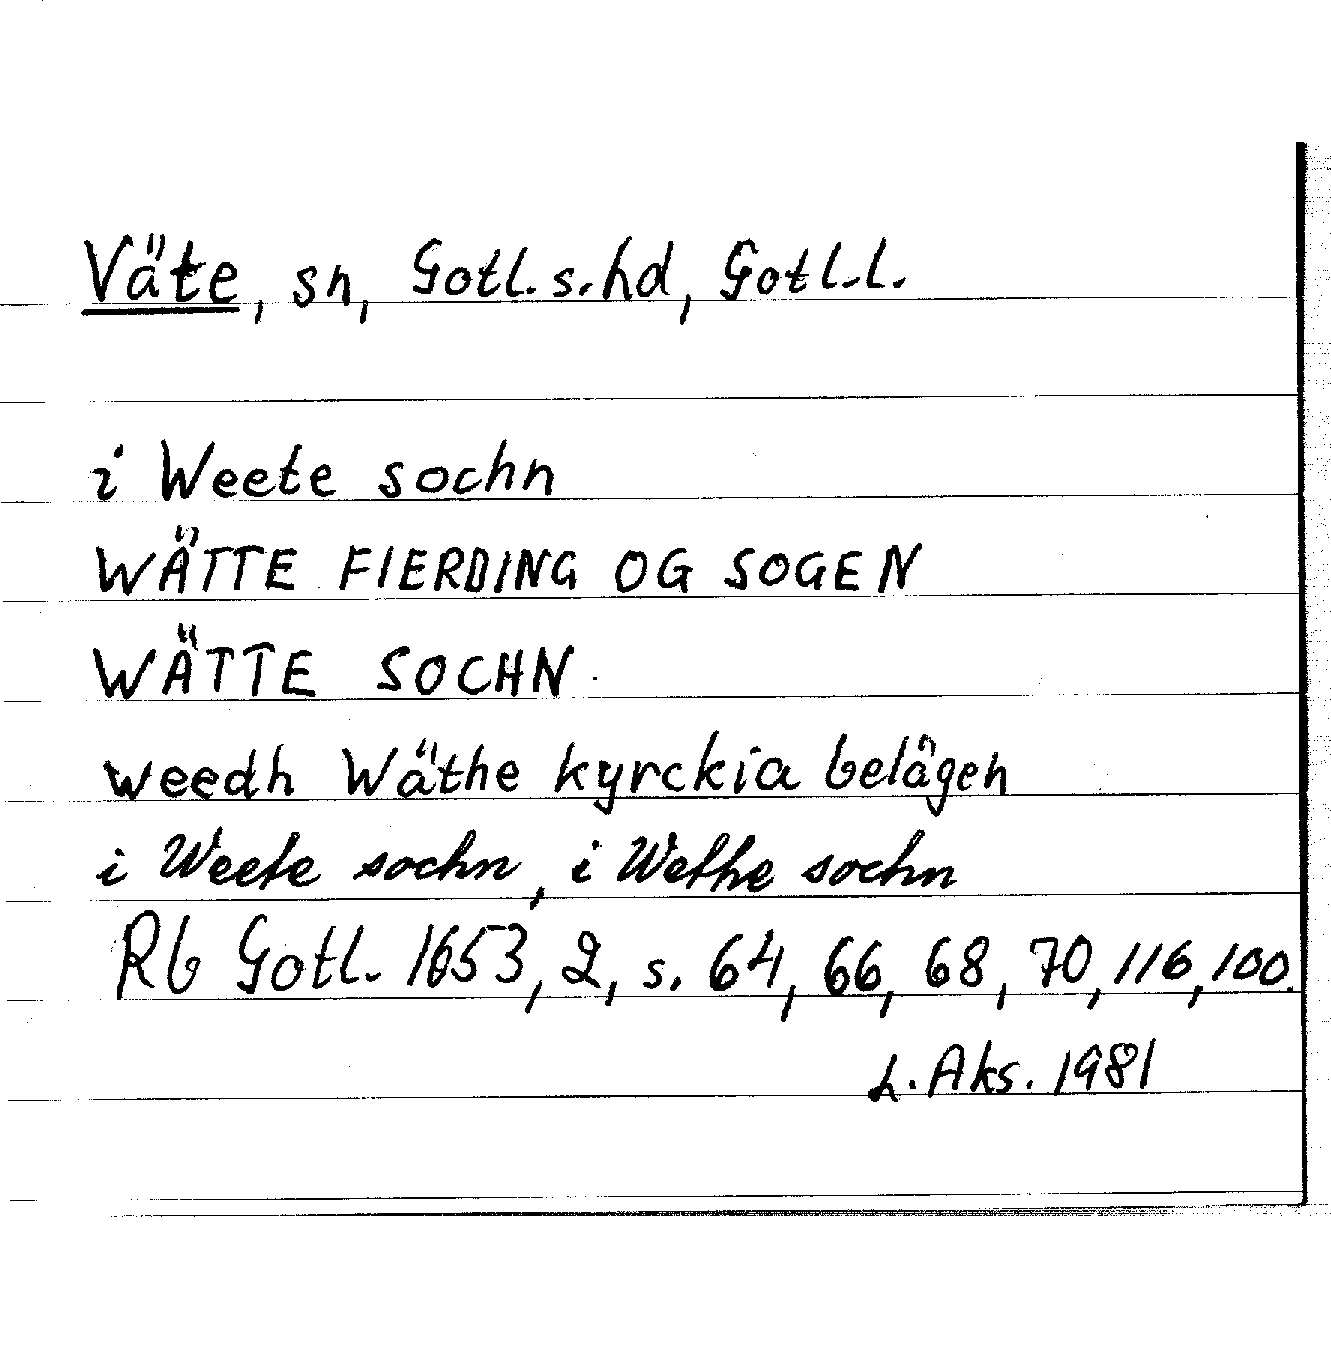 Väte, sn, Gotl. s. hd, Gotl. l.
i Weete sochn
WÄTTE FIERDING OG SOGEN
WÄTTE SOCHN.
weedh Wäthe kyrckia belågen
i Weete sochn, i Wethe sochn
Rb Gotl. 1653, 2, s. 64, 66, 68, 70, 116, 100.
L. Aks. 1981